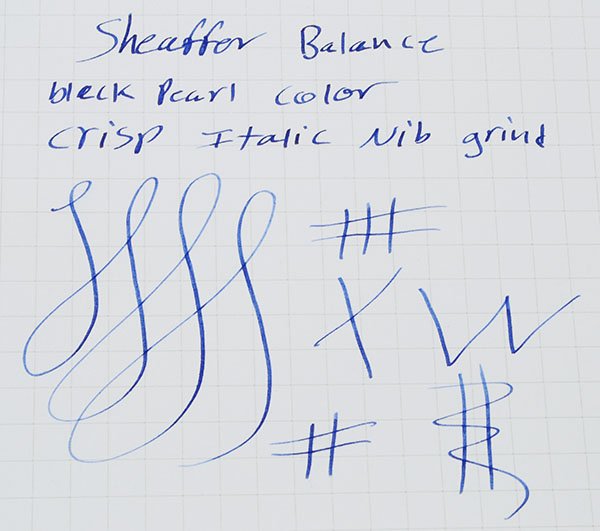 Sheaffer Balance
black Pearl color
crisp Italic Nib grind
X W